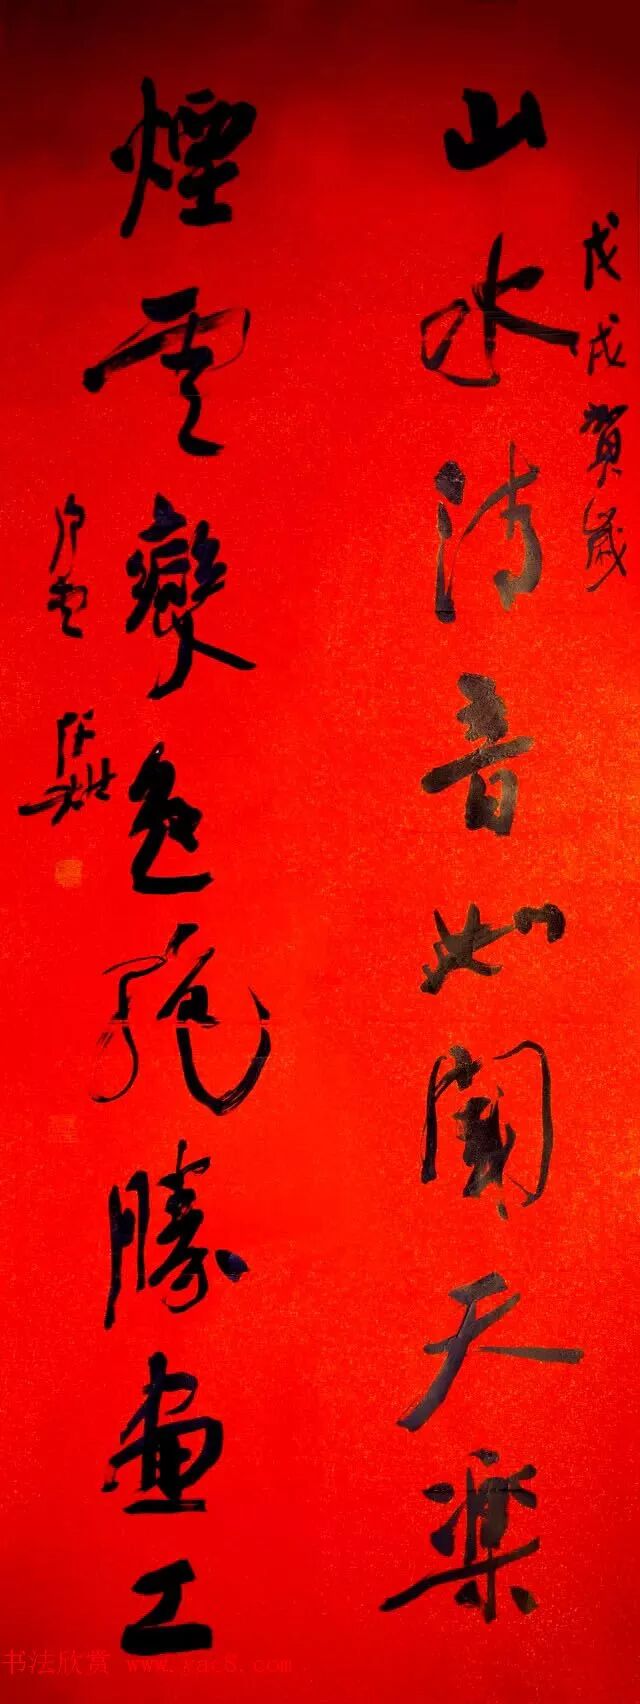 戊戌賀歲
山水清音如聞天樂
煙雲變色絶勝畫工
书法欣赏 www.yac8.com